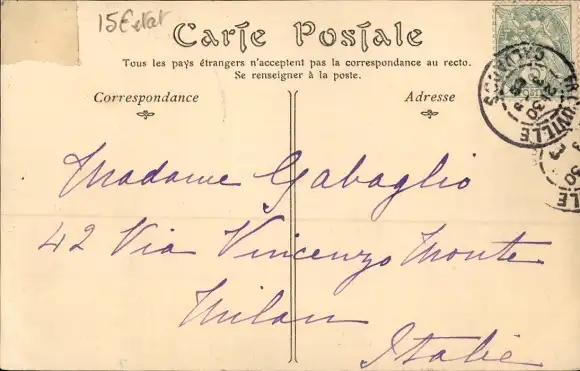 15€ etat
Carte Postale
Tous les pays étrangers n'acceptent pas la correspondance au recto.
Se renseigner à la poste.
Correspondance
Adresse
Madame Gabaglio
42 Via Vincenzo Monte
Milan
Italie